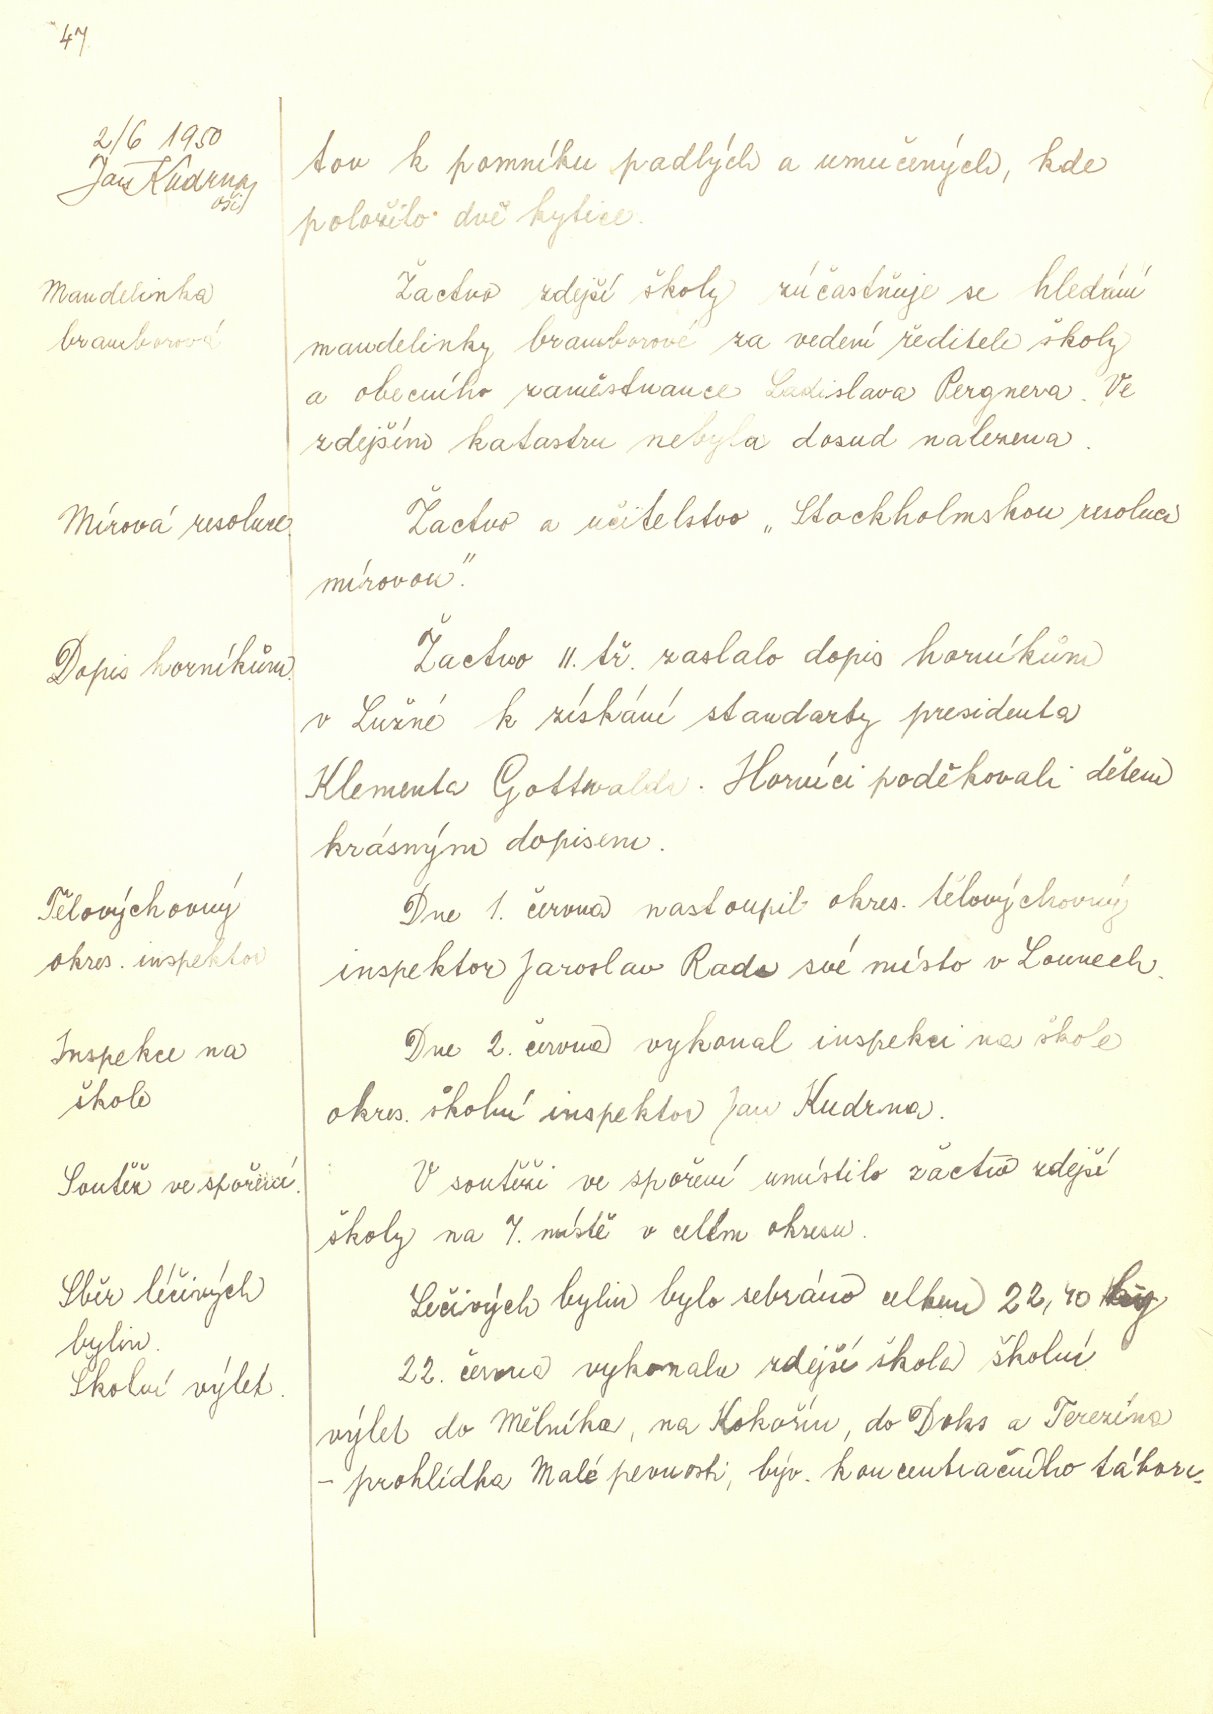 47
2/6 1950
Jan Kudrna
oši
tov k pomníku padlých a umučených, kde
položilo dvě kytice.
Mandelinka
bramborová
Žactvo zdejší školy zúčastňuje se hledání
mandelinky bramborové za vedení ředitele školy
a obecního zaměstnance Ladislava Pergnera. Ve
zdejším katastru nebyla dosud nalezena.
Mírová resoluce.
Žactvo a učitelstvo „Stockholmskou resoluci
mírovou".
Dopis horníkům.
Žactvo II. tř. zaslalo dopis horníkům
v Lužné k získání standarty presidenta
Klementa Gottwalda. Horníci poděkovali dětem
krásným dopisem.
Tělovýchovný
okres. inspektor
Dne 1. června nastoupil okres. tělovýchovný
inspektor Jaroslav Rada své místo v Lounech.
Inspekce na
škole
Dne 2. června vykonal inspekci na škole
okres. školní inspektor Jan Kudrna.
Soutěž ve spoření.
V soutěži ve spoření umístilo žactvo zdejší
školy na 7. místě v celém okresu.
Sběr léčivých
bylin.
Léčivých bylin bylo sebráno celkem 22,40 kg
Školní výlet.
22. června vykonala zdejší škola školní
výlet do Mělníka, na Kokořín, do Doks a Terezína
- prohlídka Malé pevnosti, býv. koncentračního tábora.